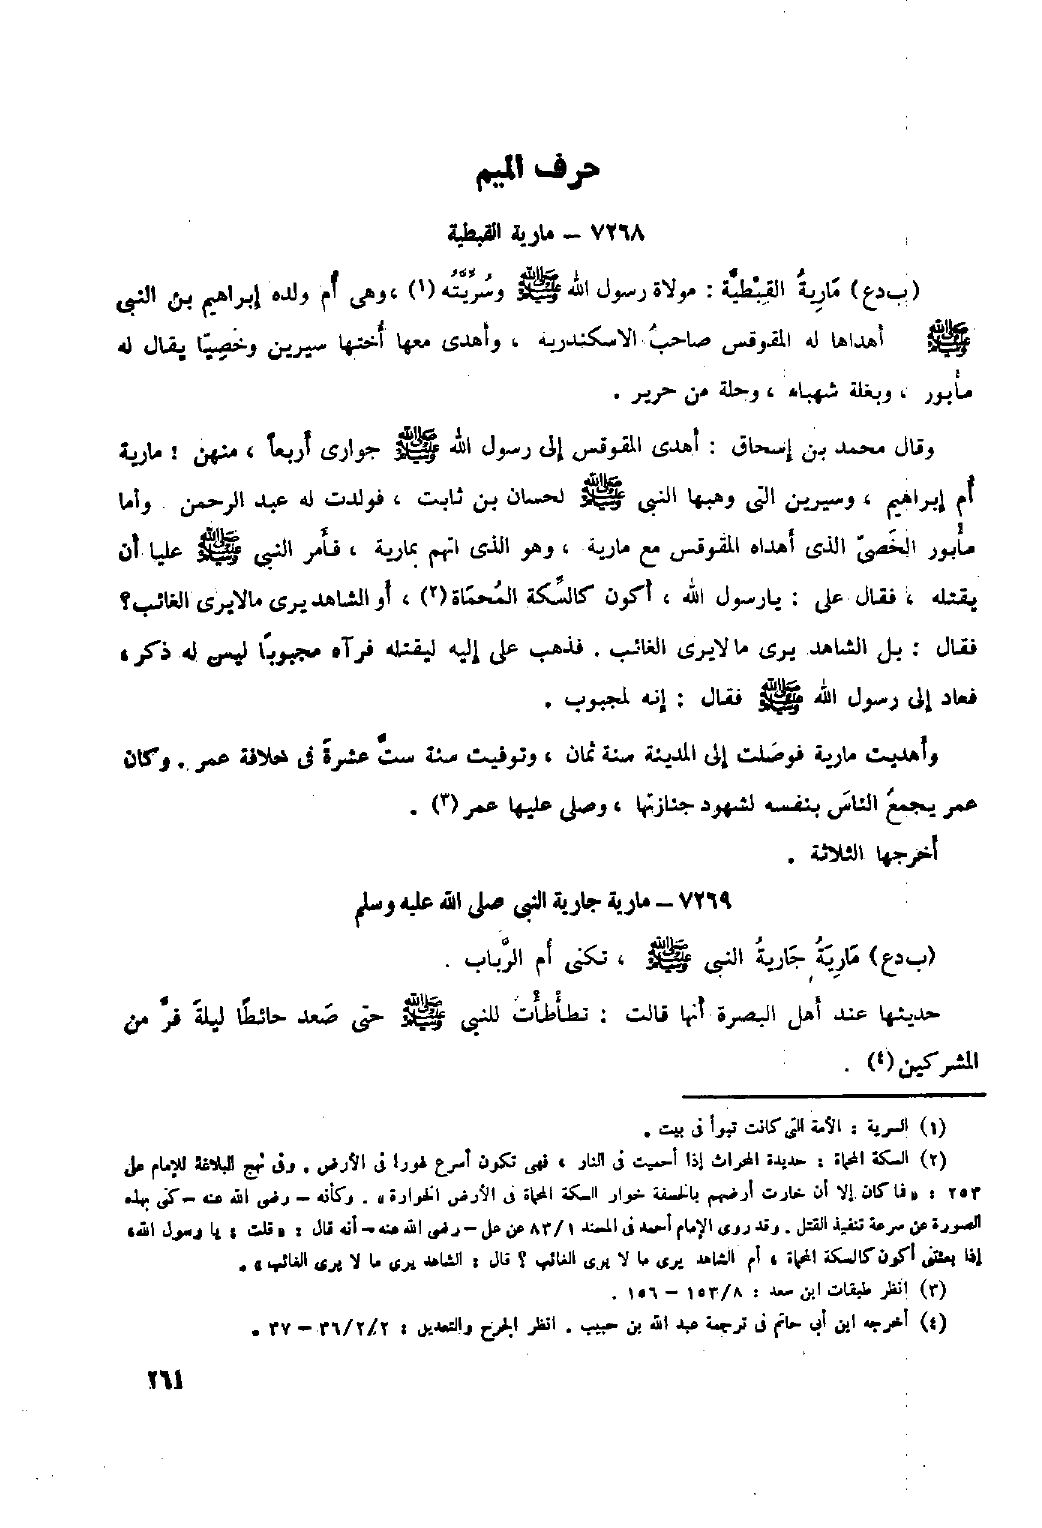 حرف الميم
٧٢٦٨ – مارية القبطية
(ب د ع) مَارِيَةُ القِبْطيَّة : مولاة رسول الله ﷺ وسُرِّيَّتُه (١) ، وهى أم ولده إبراهيم بن النبي
ﷺ أهداها له المقوقس صاحبُ الاسكندرية ، وأهدى معها أختها سيرين وخَصِيًّا يقال له
مأبور ، وبغلة شهباء ، وحلة من حرير .
وقال محمد بن إسحاق : أهدى المقوقس إلى رسول الله ﷺ جوارى أربعاً ، منهن : مارية
أم إبراهيم ، وسيرين التى وهبها النبى ﷺ لحسان بن ثابت ، فولدت له عبد الرحمن . وأما
مأبور الخَصىّ الذى أهداه المقوقس مع مارية ، وهو الذى اتهم بمارية ، فأمر النبى ﷺ عليا أن
يقتله ، فقال على : يارسول الله ، أكون كالسِّكة المُحمَاة (٢) ، أو الشاهد يرى مالايرى الغائب؟
فقال : بل الشاهد يرى مالايرى الغائب . فذهب على إليه ليقتله فرآه مجبوبًا ليس له ذكر ،
فعاد إلى رسول الله ﷺ فقال : إنه لمجبوب .
وأهديت مارية فوصَلت إلى المدينة سنة ثمان ، وتوفيت سنة ستَّ عشرةَ فى خلافة عمر . وكان
عمر يجمعُ الناسَ بنفسه لشهود جنازتها ، وصلى عليها عمر (٣) .
أخرجها الثلاثة .
٧٢٦٩ – مارية جارية النبى صلى الله عليه وسلم
(ب د ع) مَارِيَةُ جَاريةُ النبى ﷺ ، تكنى أم الرَّباب .
حديثها عند أهل البصرة أنها قالت : تطَأْطَأْتُ للنبى ﷺ حتى صَعد حائطًا ليلةَ فرَّ من
المشركين (٤) .
(١) السرية : الأمة التى كانت تبوأ فى بيت .
(٢) السكة المحماة : حديدة المحراث إذا أحميت فى النار ، فهى تكون أسرع غورا فى الأرض . وفى نهج البلاغة للإمام على
٢٥٣ : «فما كان إلا أن خارت أرضهم بالخسفة خوار السكة المحماة فى الأرض الخوارة» . وكأنه – رضى الله عنه – كنى بهذه
الصورة عن سرعة تنفيذ القتل . وقد روى الإمام أحمد فى المسند ٨٣/١ عن على – رضى الله عنه – أنه قال : «قلت : يا رسول الله،
إذا بعثتنى أكون كالسكة المحماة ، أم الشاهد يرى ما لا يرى الغائب ؟ قال : الشاهد يرى ما لا يرى الغائب» .
(٣) انظر طبقات ابن سعد : ١٥٣/٨ – ١٥٦ .
(٤) أخرجه ابن أبي حاتم فى ترجمة عبد الله بن حبيب . انظر الجرح والتعديل : ٣٦/٢/٢ – ٣٧ .
٢٦١